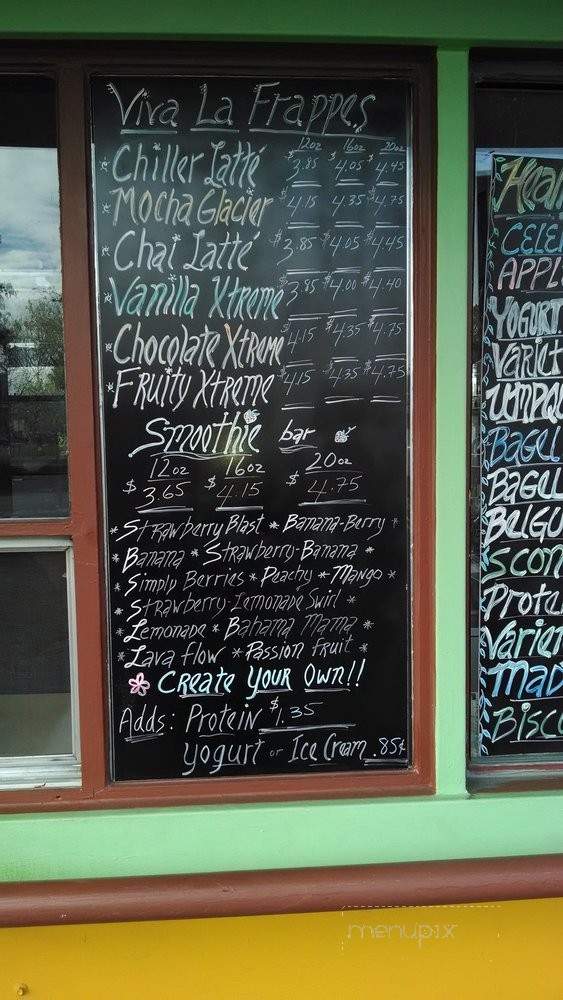 Viva La Frappes
12oz 16oz 20oz
* Chiller Latté $3.85 $4.05 $4.45
* Mocha Glacier $4.15 $4.35 $4.75
* Chai Latté $3.85 $4.05 $4.45
* Vanilla Xtreme $3.85 $4.00 $4.40
* Chocolate Xtreme $4.15 $4.35 $4.75
* Fruity Xtreme $4.15 $4.35 $4.75
Smoothie bar
12oz 16oz 20oz
$3.65 $4.15 $4.75
* Strawberry Blast * Banana-Berry
* Banana * Strawberry-Banana *
* Simply Berries * Peachy * Mango *
* Strawberry-Lemonade Swirl *
* Lemonade * Bahama Mama *
* Lava flow * Passion Fruit *
Create Your Own!!
Adds: Protein $1.35
yogurt or Ice Cream .85¢
CELE
APPL
YOGURT
VARIET
UMPQ
BAGEL
BAGEL
BELGI
SCON
Prote
Varie
MAD
BISC
menupix